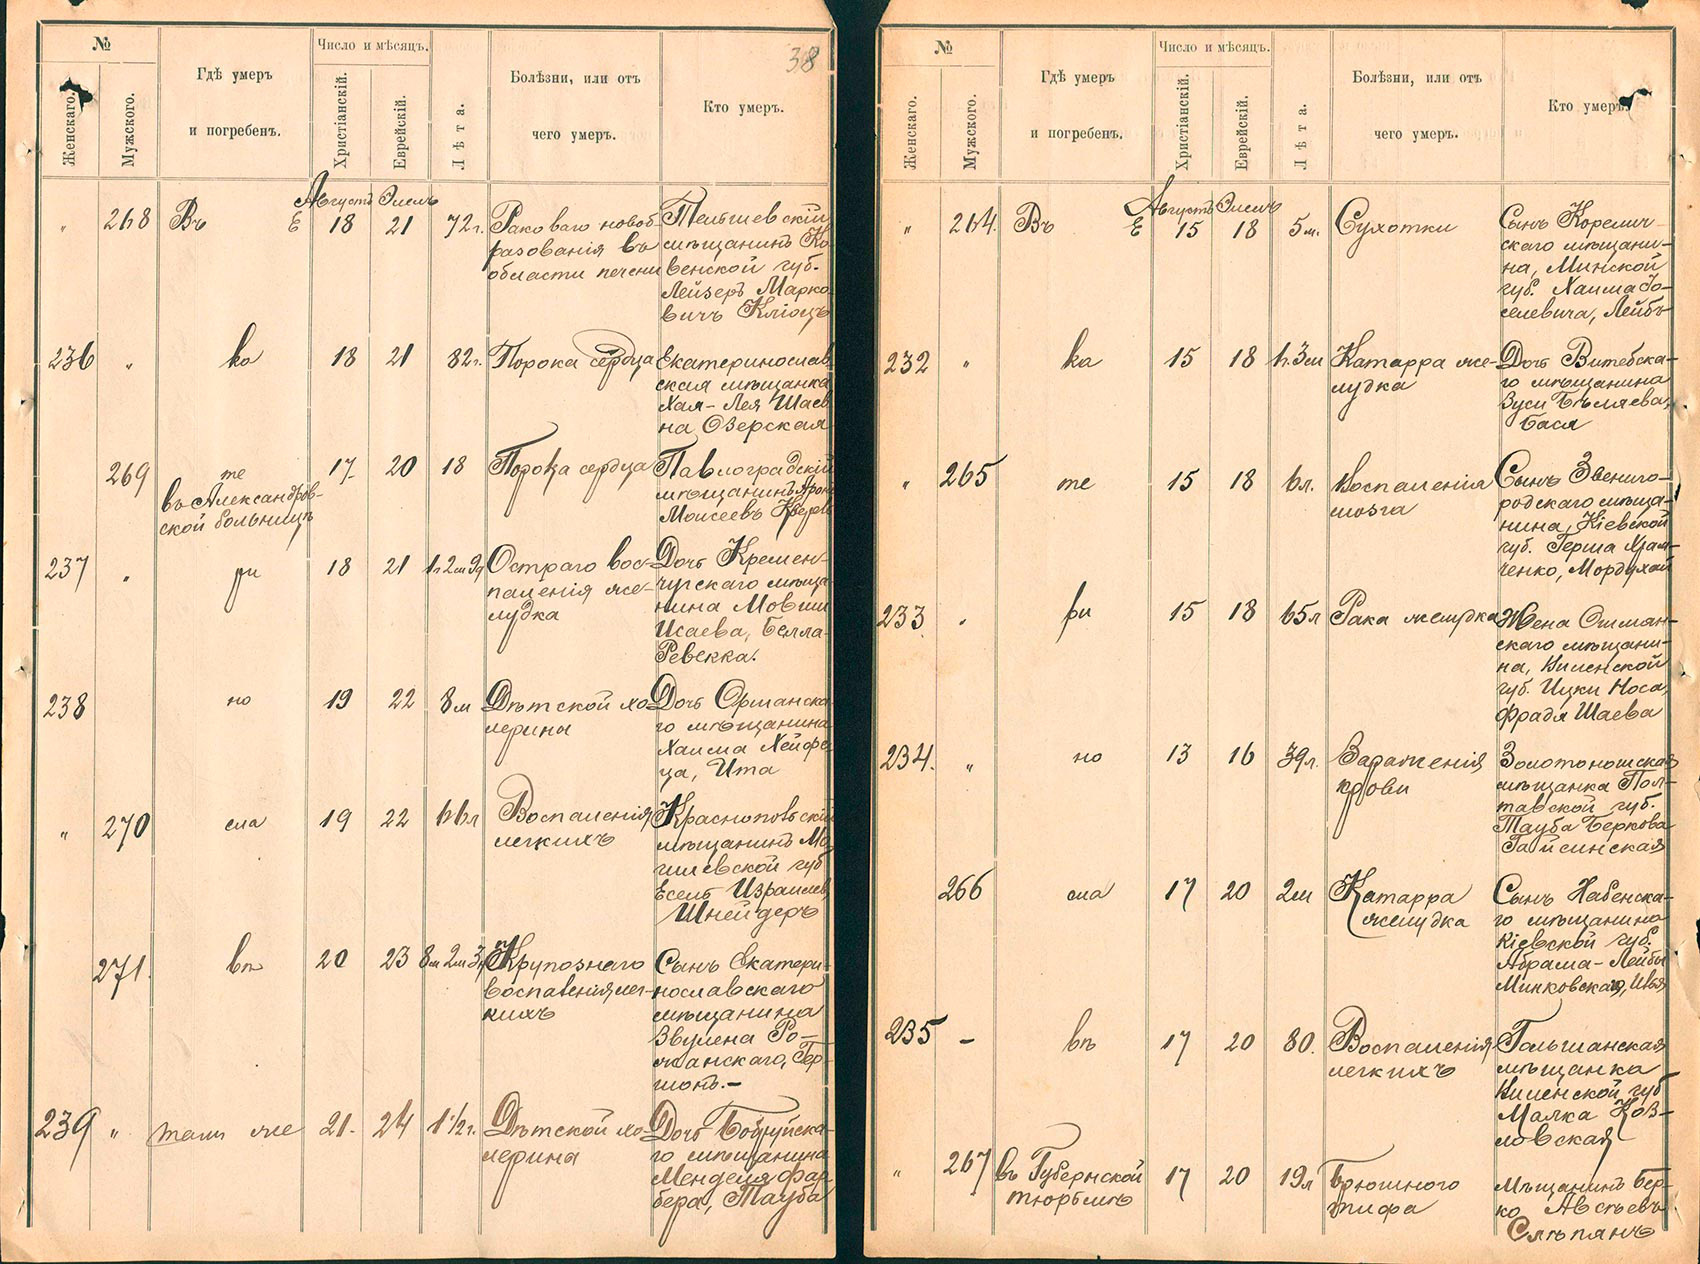 38
№
Женскаго.
Мужского.
Гдѣ умеръ
и погребенъ.
Число и мѣсяцъ.
Христіанскій.
Еврейскій.
Лѣта.
Болѣзни, или отъ
чего умеръ.
Кто умеръ.
Августъ Элелъ
" 268 Въ Е 18 21 72 г.
Раковаго новоб-
разованія въ
области печени
Тельшевскій
мѣщанинъ Ко-
венской губ.
Лейзеръ Марко-
вичъ Кліоцъ
236 " ко 18 21 82 г. Порока сердца
Екатеринослав-
ская мѣщанка
Хая-Лея Шаев
на Озерская
269 те 17 20 18 Порока сердца
въ Александров-
ской больницѣ
Павлоградскій
мѣщанинъ Аронъ
Моисеевъ
237 " ри 18 21 1г 2м 9д
Остраго вос-
паленія же-
лудка
Дочь Кремен-
чугскаго мѣща-
нина Мовши
Исаева, Белла-
Ревекка.
238 но 19 22 8м
Дѣтской хо-
лерины
Дочь Оршанска-
го мѣщанина
Хаима Хейфе-
ца, Ита
" 270 сла 19 22 66л
Воспаленія
легкихъ
Краснопольскій
мѣщанинъ Мо-
гилевской губ
Есель Израилев
Шнейдеръ
271. вѣ 20 23
Крупознаго
воспаленія лег-
кихъ
Сынъ Екатери-
нославскаго
мѣщанина
Звулена Ро-
жанскаго, Гер-
шонъ.-
239 " тамъ же 21. 24 1½ г.
Дѣтской хо-
лерина
Дочь Бобруйска-
го мѣщанина
Менделя Фар
бера, Тауба
№
Женскаго.
Мужского.
Гдѣ умеръ
и погребенъ.
Число и мѣсяцъ.
Христіанскій.
Еврейскій.
Лѣта.
Болѣзни, или отъ
чего умеръ.
Кто умеръ.
Августъ Элелъ
" 264. Въ Е 15 18 5м. Сухотки
Сынъ Корелич-
скаго мѣщани-
на, Минской
губ. Хаима Іо-
селевича, Лейбъ
232 " ка 15 18 1г. 3м
Катарра же-
лудка
Дочь Витебска-
го мѣщанина
Зуси Бѣляева,
Бася
" 265 те 15 18 6л.
Воспаленія
мозга
Сынъ Звениго-
родскаго мѣща-
нина, Кіевской
губ. Герша Храм-
ченко, Мордухай
233 " ри 15 18 65л Рака желудка
Жена Ошмян-
скаго мѣщани-
на, Виленской
губ. Ицки Носа,
Фрадя Шаева
234. " но 13 16 39л.
Зараженія
крови
Золотоношская
мѣщанка Пол-
тавской губ.
Тауба Беркова
Гайсинская
266 сла 17 20 2м
Катарра
желудка
Сынъ Хабенска-
го мѣщанина
Кіевской губ.
Абрама-Лейбы
Минковскаго,
235 - вѣ 17 20 80.
Воспаленія
легкихъ
Гольшанская
мѣщанка
Виленской губ
Малка Коз-
ловская
" 267 въ Губернской 17 20 19л
тюрьмѣ
Брюшного
тифа
Мѣщанинъ Бер-
ко Авсѣевъ
Слѣпянъ